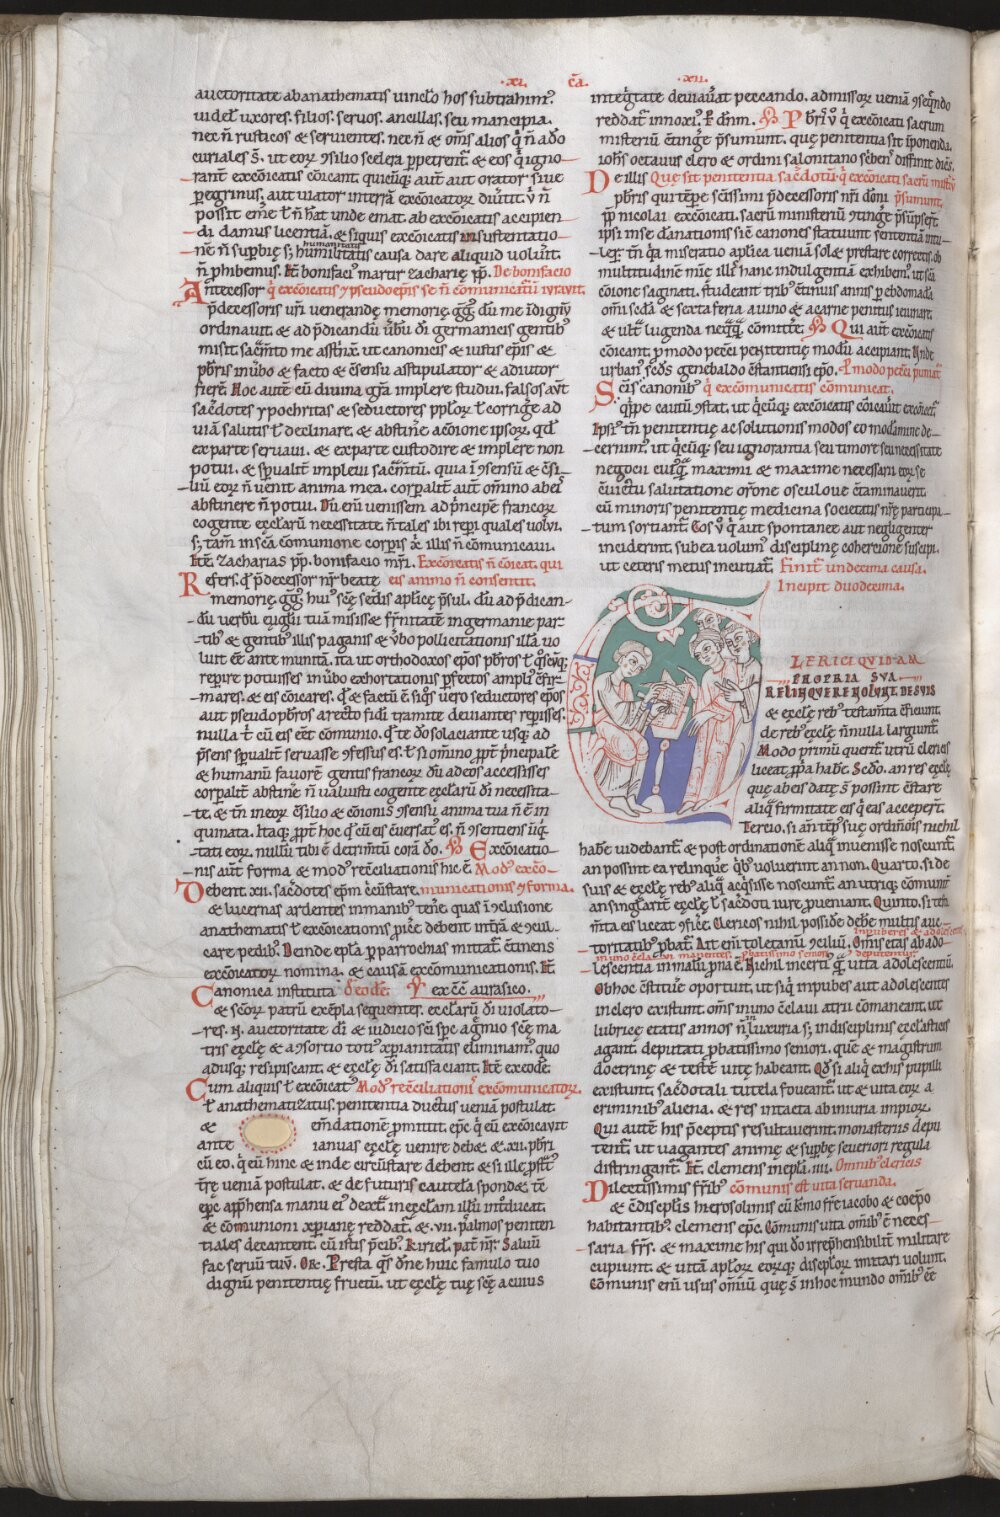 ·xi· cā. ·xii·
auctoritate ab anathematis uinclo hos subtrahim⁹.
uidel& uxores. filios. seruos. ancillas. seu mancipia.
nec ñ rusticos & seruientes. nec ñ & om̄s alios q̇ ñ adeo
curiales s̄. ut eoꝝ ↄsilio scelera ꝑpetrent᷑ & eos q̇ igno-
rant᷑ excōicatis cōicant. quicūq; aut̄ aut orator siue
ꝑegrinus. aut uiator in terrā excōicatoꝝ
possit em̄e ł ñ hab& unde emat. ab excōicatis accipien-
di damus licentiā. & siquis excōicatis in sustentatio-
humanitatis
nē ñ supbię s; humilitatis causa dare aliquid uoluerit.
ñ phibemus. It̄ bonifaci⁹ martir zacharię pp̄. De bonifacio
Antecessor q̇ excōicatis & pseudoep̄is se ñ cōmunicatur̄ iurauit.
p̄decessoris ur̄i uenerandę memorię. gg̃. dū me īdignū
ordinauit. & ad p̄dicandū uerbū dī germanicis gentib⁹
misit. sac̄mto me astrinx̄. ut canonicis & iustis ep̄is &
p̄bris in uerbo & facto & cōsensu astipulator & adiutor
fierē. Hoc autē cū diuina gr̄a implere studui. falsos aut̄
sac̄dotes ypochritas & seductores pplōꝝ ł corrigē ad
uiā salutis ł declinare. & abstinē a cōione ipsoꝝ. qd̄
ex parte seruaui. & ex parte custodire & implere non
potui. & spūalit̄ impleui sac̄mtū. quia ī ↄsensū & cōsi-
liū eoꝝ ñ uenit anima mea. corporalit̄ aut̄ om̄ino ab ei⁹
abstinere ñ potui. Dū eni uenissem ad p̄ncipē francoꝝ
cogente ęcclarū necessitate. ñ tales ibi reperi quales uolui.
s; tam̄ in sc̄a cōmunione corporis xp̄i illis ñ cōmunicaui.
It̄ Zacharias pp̄. bonifacio mr̄i. Excōicatis ñ cōicat. qui
Refers. q̄ p̄decessor nr̄ beatę eis animo ñ consentit.
memorię. gg̃. hui⁹ sc̄ę sedis aplicę p̄sul. dū ad p̄dican-
dū uerbū euglii tuā misisse fr̄nitatē in germanie par-
tib⁹ & gentib⁹ illis paganis & uerbo pollicitationis illā uo
luit ēē ante munitā. ita ut orthodoxos ep̄os p̄bros ł q̇scūq;
reperire potuisses in uerbo exhortationis ꝑfectos ampli⁹ cōfir-
mares. & eis cōicares. q̄ & factū ē. siq̇s uero seductores ep̄os
aut pseudo p̄bros a recto fidei tramite deuiantes repperisses.
nulla t̄ cū eis eēt cōmunio. q̄ te dō solaciante usq; ad
p̄sens spūalit̄ seruasse ↄfessus es. ł si om̄ino ppt̄ p̄ncipale
& humanū fauorē gentis francoꝝ dū ad eos accessisses
corporalit̄ abstinē ñ ualuisti cogente ęcclarū dī necessita-
te. & tn̄ in eoꝝ cōsilio & cōionis ↄsensu anima tua ñ ē in
quinata. Itaq; ppt̄ hoc q̄ cū eis cōuersat⁹ es. ñ ↄsentiens iniq̇-
tati eoꝝ. nullū tibi ē detrim̄tū corā dō. Excōicatio-
nis aut̄ forma & mod⁹ recōciliationis hic ē. Mod⁹ excō-
Debent. xii. sac̄dotes ep̄m circūstare. municationis & forma.
& lucernas ardentes in manib⁹ tenē. quas ī ↄclusione
anathematis ł excōicationis proicē debent in trā & ↄcul-
care pedib⁹. Deinde epl̄a ꝑ parrochias mittat᷑. cōtinens
excōicatoꝝ nomina. & causā excōmunicationis. It̄
Canonica instituta de eodē. ex cc̄ aurasico.
& sc̄oꝝ patrū exēpla sequentes. ęcclarū dī uiolato-
res. N̄. auctoritate dī & iudicio sc̄i sp̄c a gremio sc̄ę ma
tris ęcclę & a ↄsortio toti⁹ xp̄ianitatis eliminam⁹. quo
adusq; resipiscant. & ęcclę dī satisfaciant. It̄ ex eodē.
Cum aliquis ł excōicat⁹ Mod⁹ recōciliationis excōmunicatoꝝ.
ł anathematizatus. penitentia ductus ueniā postulat.
& em̄dationē promittit. ep̄c q̇ eū excōicauit
ante ianuas ęcclę uenire deb& & xii. p̄bri
cū eo. q̇ eū hinc & inde circūstare debent. & si ille pstrat⁹
t̄rę ueniā postulat. & de futuris cautela spond&. tē
ep̄c app̄hensa manu ei⁹ dext̄a in ęcclam illū int̄ducat.
& cōmunioni xp̄ianę reddat. & .vii. psalmos peniten
tiales decantent. cū istis p̄cib⁹. kiriel. pat̄ nr̄. Saluū
fac seruū tuū. Or̄. Presta q̄s dn̄e huic famulo tuo
dignū penitentię fructū. ut ęcclę tuę sc̄ę a cuius
integ̃tate deuiauat peccando. admissoꝝ ueniā ↄseq̄ndo
reddat᷑ innoxi⁹. ꝑ dn̄m. P̄bri u̇ q̇ excōicati sacrum
misteriū cōting̃e p̄sumunt. quę penitentia sit īponenda.
ioh̄s octauus clero & ordini salonitano scrb̄ens diffinit dices.
De illis Quę sit penitentia sac̄dotū. q̇ excōicati sacrū mist̄iū
p̄bris qui tēpore sc̄issimi p̄decessoris nr̄i dōni p̄sumunt.
pp̄ nicolai excōicati. sacrū ministeriū ↄting̃e p̄sūpserūt.
ipsi in se dānationis siē canones statuunt sententiā intu-
ler̄. tn̄ q̄a miseratio aplica ueniā sol& prestare correctis. ob
multitudinē nūc illis hanc indulgentiā exhibem⁹. ut sc̄a
cōione saginati. studeant trib⁹ cōtinuis annis ꝑ ebdomadā
om̄i sc̄da & sexta feria a uino & a carne penitus ieiunare.
& ult̄ lugenda neq̄q̄ cōmittere. Qui aut̄ excōicatis
cōicant. ꝑmodo peccati penitentię modū accipiant. Unde
urban⁹ sc̄ds genebaldo cōstantiensi ep̄o. P modo peccati puniat᷑
Sc̄is canonib⁹ q̇ excōmunicatis cōmunicat.
q̇ppe cautū ↄstat. ut q̇cūq; excōicatis cōicauerit excōicet᷑.
Ipsi⁹ tn̄ penitentię ac solutionis modos eo modamine de-
cernim⁹. ut q̇cūq; seu ignorantia seu timore seu necessitate
negocii cui⁹q̄ maximi & maxime necessarii eoꝝ se
cōuictu salutatione or̄one osculoue cōtaminauerit.
cū minoris penitentię medicina societatis nr̄ę participa-
tum sortiant᷑. Eos u̇ q̇ aut spontanee aut negligenter
inciderint. sub ea uolum⁹ disciplinę cohercione suscipi.
ut ceteris metus incutiat᷑. Finit undecima causa.
Incipit duodecima.
CLERICI QUIDAM
PROPRIA SUA
RELINQUERE NOLUNT. DE SUIS
& ęcclę reb⁹ testam̄ta cōficiunt.
de reb⁹ ęcclę ñnulla largiunt᷑.
Modo primū querit᷑ utrū clericis
liceat ꝓpria habē. Sc̄do. an res ęcclę
quę ab eis datę s̄ possint cōstare
aliq̄ firmitate eis q̇ eas acceper̄t.
Tercio. si an̄ tēp⁹ suę ordinationis nichil
habē uidebant᷑ & post ordinationē aliq̄ inuenisse noscunt᷑.
an possint ea relinquē q̇b⁹ uoluerint an non. Quarto. si de
suis & ęcclę reb⁹ aliq̄ acq̇sisse noscunt᷑. an utriq; cōmunit̄
an singularit᷑ ęcclę ł sac̄doti iure ꝓueniant. Quinto. si testa
m̄ta eis liceat ↄficē. Clericos nihil possidē debē multis auc-
toritatib⁹ pbat᷑. Ait eni toletanū ↄciliū. Om̄is etas ab ado-
impuberes & adolescentes
in uno cōclaui manentes. pbatissimo seniori deputentur
lescentia in malū prona ē. Nichil incerti⁹ q̄ uita adolescentiū.
Ob hoc cōstituē oportuit. ut siq̇ inpubes aut adolescentes
in clero existunt. om̄s in uno cōclaui atrii cōmaneant. ut
lubricę etatis annos ñ luxuria s; in disciplinis ęcclasticis
agant. deputati pbatissimo seniori. quē & magistrum
doctrinę & testē uitę habeant. Qd̄ si aliq̇ ex his pupilli
existunt. sac̄dotali tutela foueant᷑. ut & uita eoꝝ a
criminib⁹ aliena. & res intacta ab iniuria impioꝝ.
Qui autē his p̄ceptis resultauerint. monasteriis depu
tent᷑. ut uagantes animę & suꝑbę seueriori regula
distringant᷑. It̄. clemens in epl̄a .iiii. Omnib⁹ clericis
Dilectissimis fr̄ib⁹ cōmunis est uita seruanda.
& cōdiscipl̄is hierosolimis cū kmo fr̄e iacobo & coep̄o
habitantib⁹. clemens ep̄c. Cōmunis uita omīb⁹ ē neces-
saria fr̄s. & maxime his qui dō irrephensibilit̄ militare
cupiunt. & uitā apl̄oꝝ eoꝝq; discipl̄oꝝ imitari uolunt.
Cōmunis eni usus om̄iū quę s̄ in hoc mundo omīb⁹ ēē